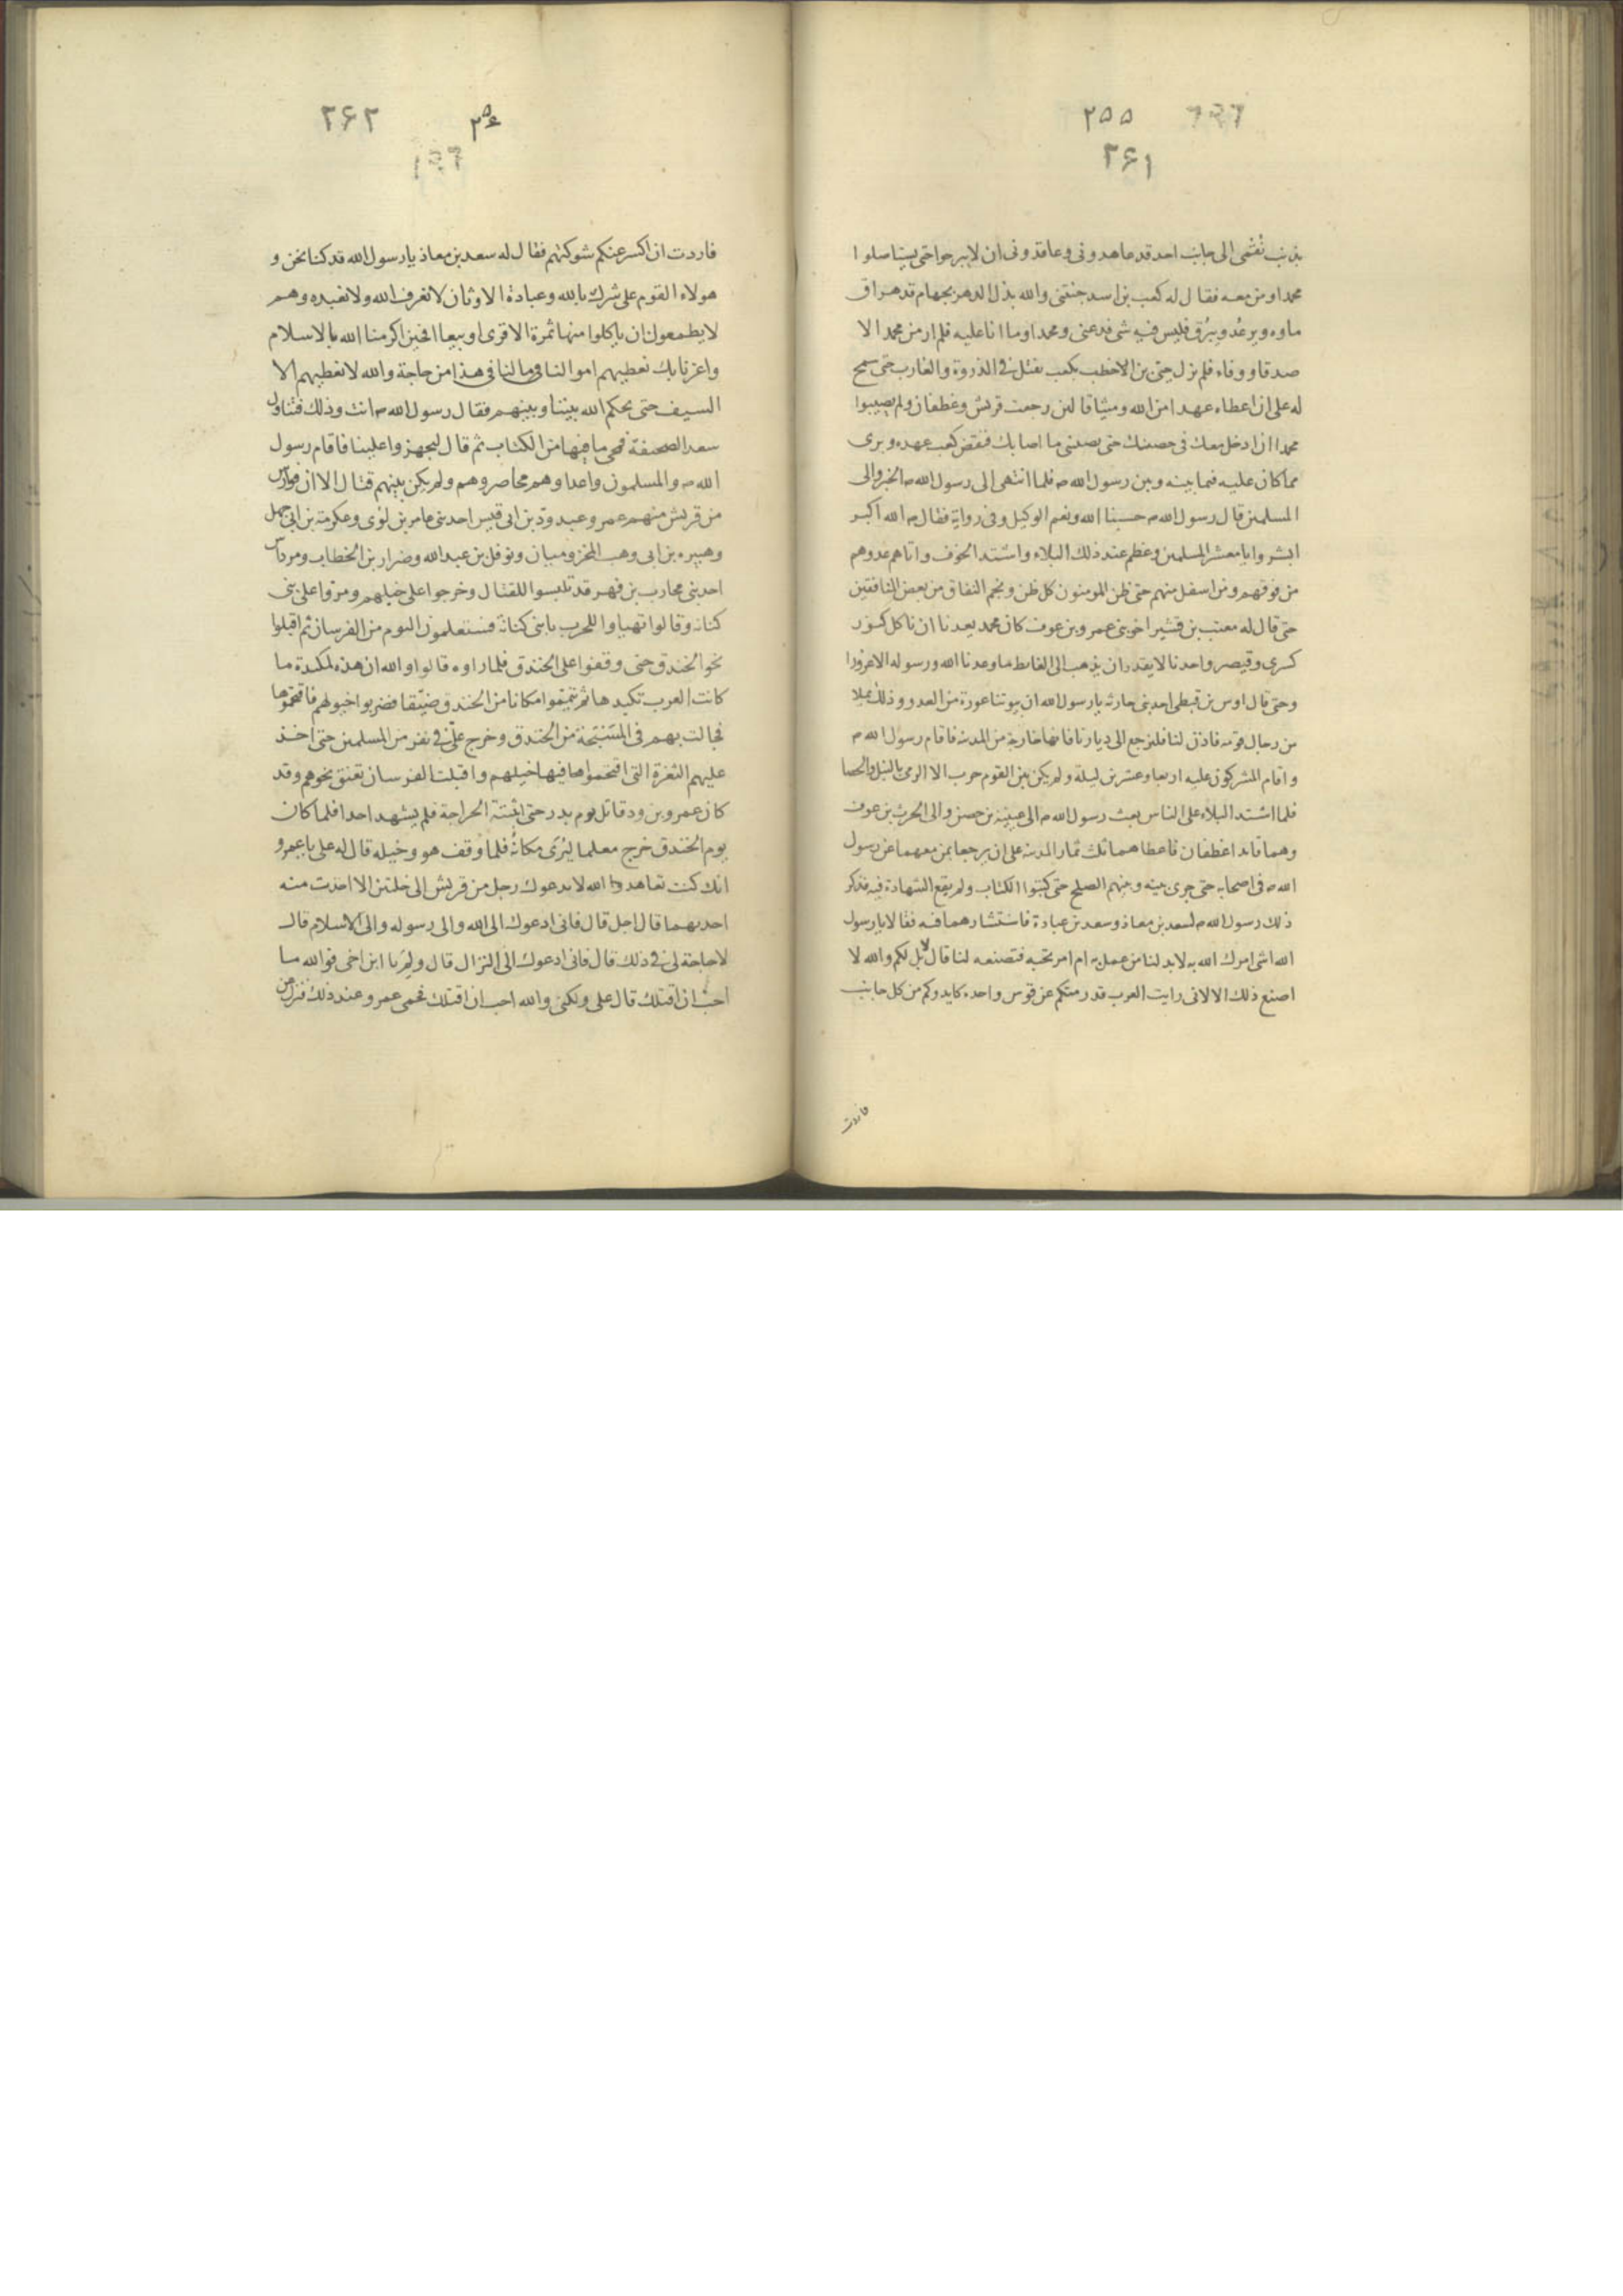 ٢٥٥
٢۶١
بذنب نقمى الى جانب احد قد عاهدونى وعاقدونى ان لا يبرحوا حتى يستاصلوا
محمدا ومن معه فقال له كعب بن اسد جئتنى والله بذل الدهر بجهام قد هراق
ماوه ويرعُد ويبرُق فليس فيه شى فدعنى ومحمدا وما انا عليه فلم ار من محمد الا
صدقا ووفاء فلم يزل حيى بن الاخطب بكعب يفتل فى الذروة والغارب حتى سمح
له على ان اعطاه عهدا من الله وميثاقا لئن رجعت قريش وغطفان ولم يصيبوا
محمدا ان ادخل معك فى حصنك حتى يصيبنى ما اصابك فنقض كعب عهده وبرى
مما كان عليه فيما بينه وبين رسول الله ص فلما انتهى الى رسول الله ص الخبر والى
المسلمين قال رسول الله ص حسبنا الله ونعم الوكيل وفى رواية فقال ص الله اكبر
ابشروا يا معشر المسلمين وعظم عند ذلك البلاء واشتد الخوف واتاهم عدوهم
من فوقهم ومن اسفل منهم حتى ظن المومنون كل ظن ونجم النفاق من بعض المنافقين
حتى قال له معتب بن قشير اخو بنى عمرو بن عوف كان محمد يعدنا ان ناكل كنوز
كسرى وقيصر واحدنا لا يقدر ان يذهب الى الغايط ما وعدنا الله ورسوله الا غرورا
وحتى قال اوس بن قيظى احد بنى حارثه يا رسول الله ان بيوتنا عورة من العدو وذلك عن ملا
من رجال قومه فاذن لنا فلنرجع الى ديارنا فانها خارجة من المدينة فاقام رسول الله ص
واقام المشركون عليه اربعا وعشرين ليلة ولم يكن بين القوم حرب الا الرمى بالنبل والحصا
فلما اشتد البلاء على الناس بعث رسول الله ص الى عيينة بن حصن والى الحرث بن عوف
وهما قايدا غطفان فاعطاهما ثلث ثمار المدينة على ان يرجعا بمن معهما عن رسول
الله ص فى اصحابه حتى جرى بينه وبينهم الصلح حتى كتبوا الكتاب ولم يقع الشهادة فيه فذكر
ذلك رسول الله ص لسعد بن معاذ وسعد بن عبادة فاستشارهما فيه فقالا يا رسول
الله اشى امرك الله به لابد لنا من عمل به ام امر تحبه فتصنعه لنا قال لا بل لكم والله لا
اصنع ذلك الا لانى رايت العرب قد رمتكم عن قوس واحده كايدوكم من كل جانب
فاردت
٢۵۶
٢۶٢
فاردت ان اكسر عنكم شوكتهم فقال له سعد بن معاذ يا رسول الله قد كنا نحن و
هولاء القوم على شرك بالله وعبادة الاوثان لا نعرف الله ولا نعبده وهم
لا يطمعون ان ياكلوا منها ثمرة الا قرى او بيعا افحين اكرمنا الله بالاسلام
واعزنا بك نعطيهم اموالنا ما لنا فى هذا من حاجة والله لا نعطيهم الا
السيف حتى يحكم الله بيننا وبينهم فقال رسول الله ص انت وذلك فتناول
سعد الصحيفة فمحى ما فيها من الكتاب ثم قال ليجهزوا علينا فاقام رسول
الله ص والمسلمون واعدا وهم محاصروهم ولم يكن بينهم قتال الا ان فوارس
من قريش منهم عمرو عبد ودّ بن ابى قيس احد بنى عامر بن لؤى وعكرمة بن ابى جهل
وهبيره بن ابى وهب المخزوميان ونوفل بن عبد الله وضرار بن الخطاب ومرداس
احد بنى محارب بن فهر قد تلبسوا للقتال وخرجوا على خيلهم ومروا على بنى
كنانه وقالوا تهياوا للحرب يا بنى كنانة فستعلمون اليوم من الفرسان ثم اقبلوا
نحو الخندق حتى وقفوا على الخندق فلما راوه قالوا والله ان هذه لمكيدة ما
كانت العرب تكيدها ثم تيمموا مكانا من الخندق ضيّقا فضربوا خيولهم فاقتحموها
فجالت بهم فى السبخة من الخندق وخرج علىّ فى نفر من المسلمين حتى اخذ
عليهم الثغرة التى اقتحموها فيها خيلهم واقبلت الفرسان تعنق نحوهم وقد
كان عمرو بن ود قاتل يوم بدر حتى اثبتته الجراحة فلم يشهد احدا فلما كان
يوم الخندق خرج معلما ليُرَى مكانه فلما وقف هو وخيله قال له على يا عمرو
انك كنت تعاهد الله لا يدعوك رجل من قريش الى خلتين الا اخذت منه
احديهما قال اجل قال فانى ادعوك الى الله والى رسوله والى الاسلام قال
لا حاجة لى فى ذلك قال فانى ادعوك الى النزال قال ولِمَ يا ابن اخى فوالله ما
احبّ ان اقتلك قال على ولكنى والله احب ان اقتلك فحمى عمرو عند ذلك فنزل عن